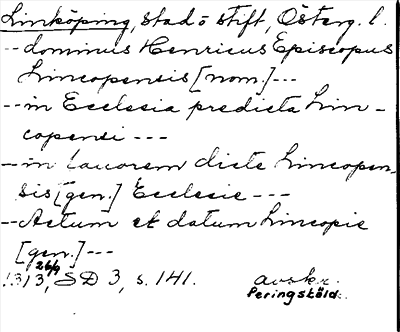 Linköping, stad o stift, Österg. l.
-- dominus Henricus Episcopus
Lincopensis [nom.] ---
-- in Ecclesia predicta Lin-
copensi ---
-- in fauorem dicte Lincopen-
sis [gen.] Ecclesie ---
-- Actum et datum Lincopie
[gen.] ---
1313 26/9, SD 3, s. 141. avskr.
Peringsköld.